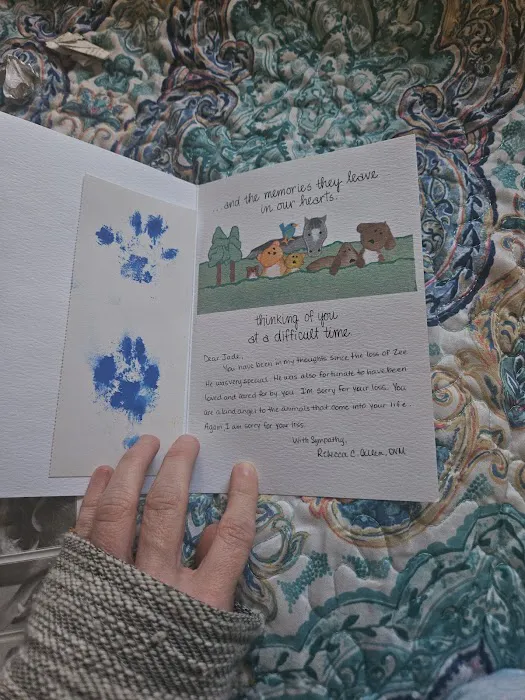 ...and the memories they leave
in our hearts.
thinking of you
at a difficult time
Dear Jade,
You have been in my thoughts since the loss of Zee
He was very special. He was also fortunate to have been
loved and cared for by you. I'm sorry for your loss. You
are a kind angel to the animals that come into your life
Again I am sorry for your loss.
With Sympathy,
Rebecca C. Allen, DVM